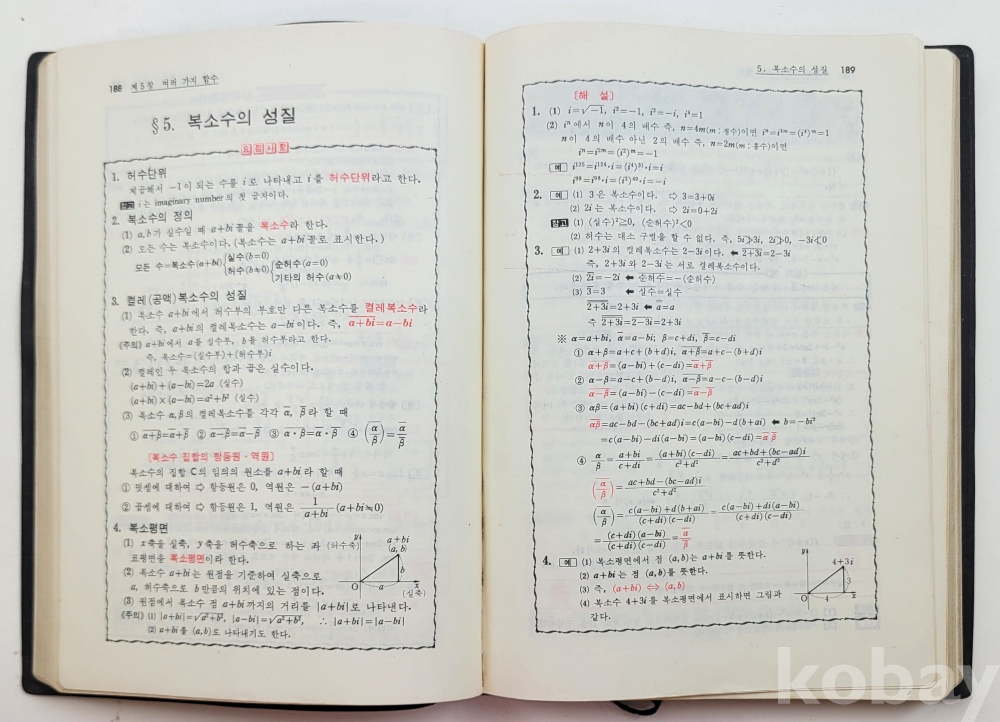 188 제5장 여러 가지 함수
§5. 복소수의 성질
요점사항
1. 허수단위
제곱해서 −1이 되는 수를 i로 나타내고 i를 허수단위라고 한다.
참고 i는 imaginary number의 첫 글자이다.
2. 복소수의 정의
(1) a, b가 실수일 때 a+bi꼴을 복소수라 한다.
(2) 모든 수는 복소수이다. (복소수는 a+bi꼴로 표시한다.)
모든 수=복소수(a+bi) {실수(b=0)
허수(b≠0) {순허수(a=0)
기타의 허수(a≠0)
3. 켤레(공액)복소수의 성질
(1) 복소수 a+bi에서 허수부의 부호만 다른 복소수를 켤레복소수라
한다. 즉, a+bi의 켤레복소수는 a−bi이다. 즉, \overline{a+bi}=a−bi
《주의》 a+bi에서 a를 실수부, b를 허수부라고 한다.
즉, 복소수=(실수부)+(허수부)i
(2) 켤레인 두 복소수의 합과 곱은 실수이다.
(a+bi)+(a−bi)=2a (실수)
(a+bi)×(a−bi)=a²+b² (실수)
(3) 복소수 α, β의 켤레복소수를 각각 \overline{α}, \overline{β}라 할 때
① \overline{α+β}=\overline{α}+\overline{β} ② \overline{α−β}=\overline{α}−\overline{β} ③ \overline{α·β}=\overline{α}·\overline{β} ④ \overline{(α/β)}=\overline{α}/\overline{β}
[복소수 집합의 항등원·역원]
복소수의 집합 C의 임의의 원소를 a+bi라 할 때
① 덧셈에 대하여 ⇨ 항등원은 0, 역원은 −(a+bi)
② 곱셈에 대하여 ⇨ 항등원은 1, 역원은 1/(a+bi) (a+bi≒0)
4. 복소평면
(1) x축을 실축, y축을 허수축으로 하는 좌
표평면을 복소평면이라 한다.
(2) 복소수 a+bi는 원점을 기준하여 실축으로
a, 허수축으로 b만큼의 위치에 있는 점이다.
(허수축) y
a+bi
(a, b)
b
O a x
(실축)
(3) 원점에서 복소수 점 a+bi까지의 거리를 |a+bi|로 나타낸다.
《주의》 (1) |a+bi|=√a²+b², |a−bi|=√a²+b², ∴ |a+bi|=|a−bi|
(2) a+bi를 (a, b)도 나타내기도 한다.
5. 복소수의 성질 189
[해 설]
1. (1) i=√−1, i²=−1, i³=−i, i⁴=1
(2) iⁿ에서 n이 4의 배수 즉, n=4m(m:정수)이면 iⁿ=i⁴ᵐ=(i⁴)ᵐ=1
n이 4의 배수 아닌 2의 배수 즉, n=2m(m:홀수)이면
iⁿ=i²ᵐ=(i²)ᵐ=−1
예 i¹²⁵=i¹²⁴·i=(i⁴)³¹·i=i
i⁹⁹=i⁹⁸·i=(i²)⁴⁹·i=−i
2. 예 (1) 3은 복소수이다. ⇨ 3=3+0i
(2) 2i는 복소수이다. ⇨ 2i=0+2i
참고 (1) (실수)²≧0, (순허수)²<0
(2) 허수는 대소 구별을 할 수 없다. 즉, 5i≯3i, 2i≯0, −3i≮0
3. 예 (1) 2+3i의 켤레복소수는 2−3i이다. ⬅ \overline{2+3i}=2−3i
즉, 2+3i와 2−3i는 서로 켤레복소수이다.
(2) \overline{2i}=−2i ⬅ 순허수=−(순허수)
(3) \overline{3}=3 ⬅ 실수=실수
\overline{\overline{2+3i}}=2+3i ⬅ \overline{\overline{α}}=α
즉 \overline{\overline{2+3i}}=\overline{2−3i}=2+3i
※ α=a+bi, \overline{α}=a−bi; β=c+di, \overline{β}=c−di
① α+β=a+c+(b+d)i, \overline{α+β}=a+c−(b+d)i
\overline{α+β}=(a−bi)+(c−di)=\overline{α}+\overline{β}
② α−β=a−c+(b−d)i, \overline{α−β}=a−c−(b−d)i
\overline{α−β}=(a−bi)−(c−di)=\overline{α}−\overline{β}
③ αβ=(a+bi)(c+di)=ac−bd+(bc+ad)i
\overline{αβ}=ac−bd−(bc+ad)i=c(a−bi)−d(b+ai) ⬅ b=−bi²
=c(a−bi)−di(a−bi)=(a−bi)(c−di)=\overline{α}\overline{β}
④ α/β=(a+bi)/(c+di)=(a+bi)(c−di)/(c²+d²)=(ac+bd+(bc−ad)i)/(c²+d²)
\overline{(α/β)}=(ac+bd−(bc−ad)i)/(c²+d²)
\overline{(α/β)}=(c(a−bi)+d(b+ai))/((c+di)(c−di))=(c(a−bi)+di(a−bi))/((c+di)(c−di))
=((c+di)(a−bi))/((c+di)(c−di))=\overline{α}/\overline{β}
4. 예 (1) 복소평면에서 점 (a, b)는 a+bi를 뜻한다.
(2) a+bi는 점 (a, b)를 뜻한다.
(3) 즉, (a+bi) ⟺ (a, b)
(4) 복소수 4+3i를 복소평면에서 표시하면 그림과
같다.
y
4+3i
3
O 4 x
kobay